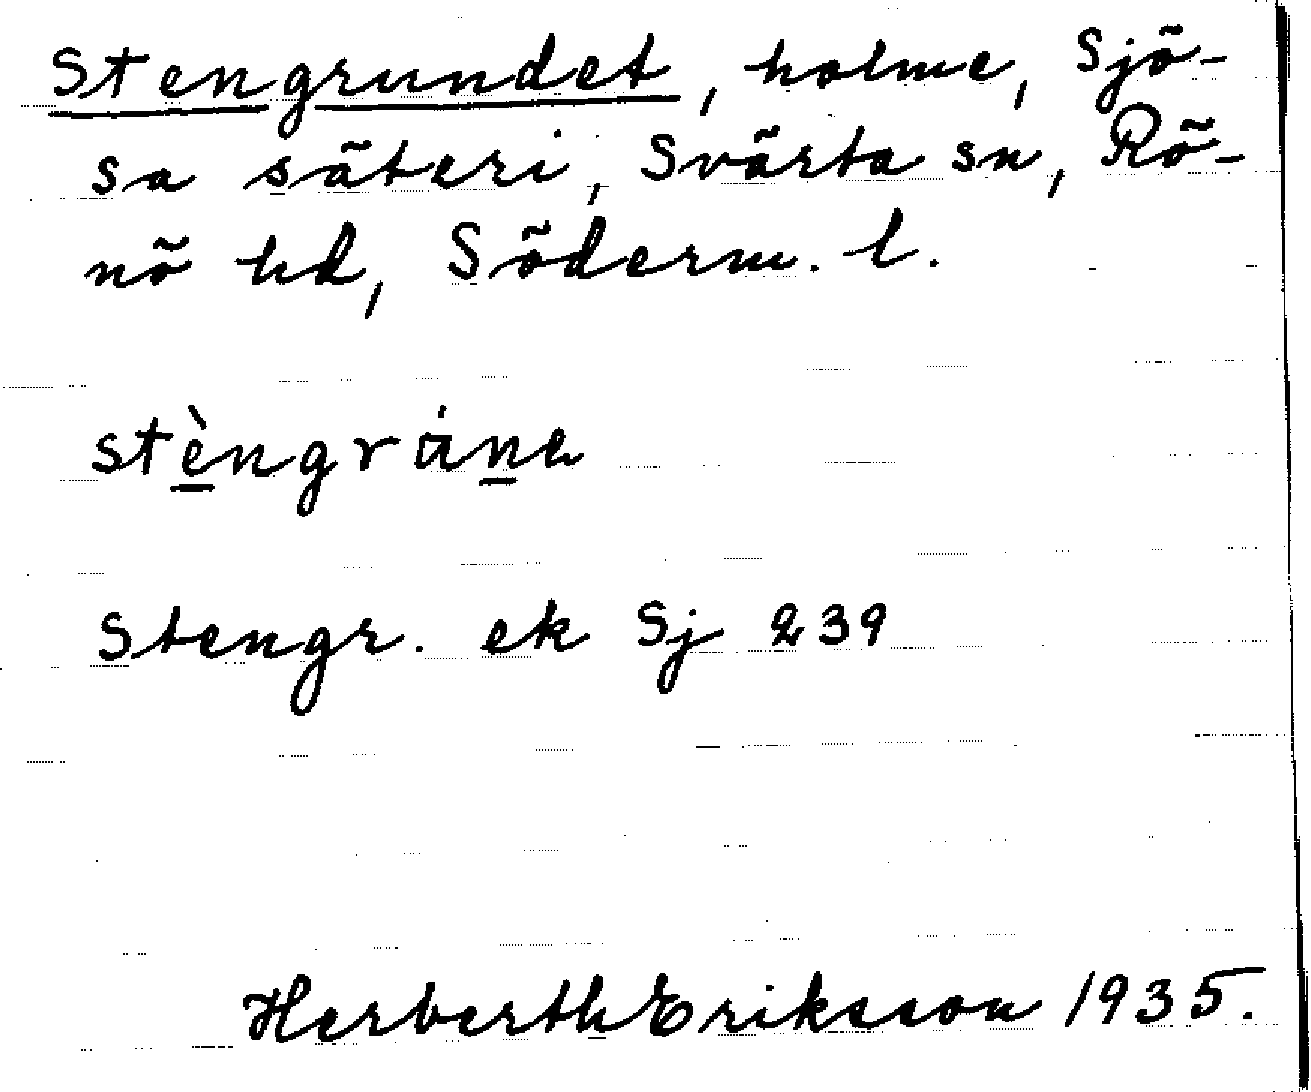 Stengrundet, holme, Sjö-
sa säteri, Svärta sn, Rö-
nö hd, Söderm. l.
stèngrune
Stengr. ek Sj 239
Herberth Eriksson 1935.